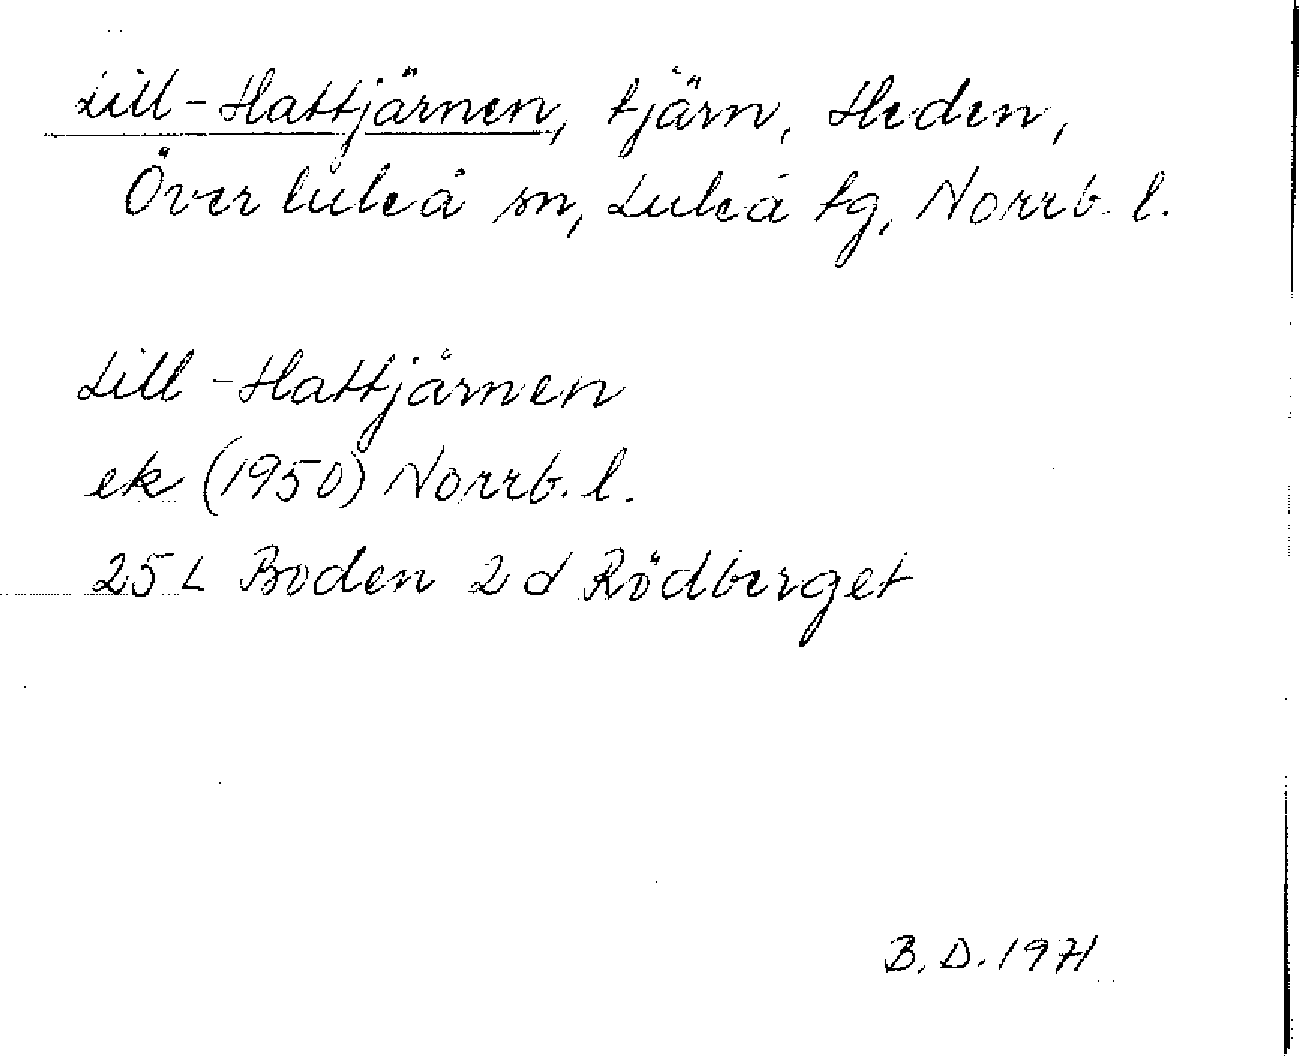 Lill-Hattjärnen, tjärn, Heden,
Överluleå sn, Luleå tg, Norrb. l.
Lill-Hattjärnen
ek (1950) Norrb. l.
25 L Boden 2 d Rödberget
B. D. 1971